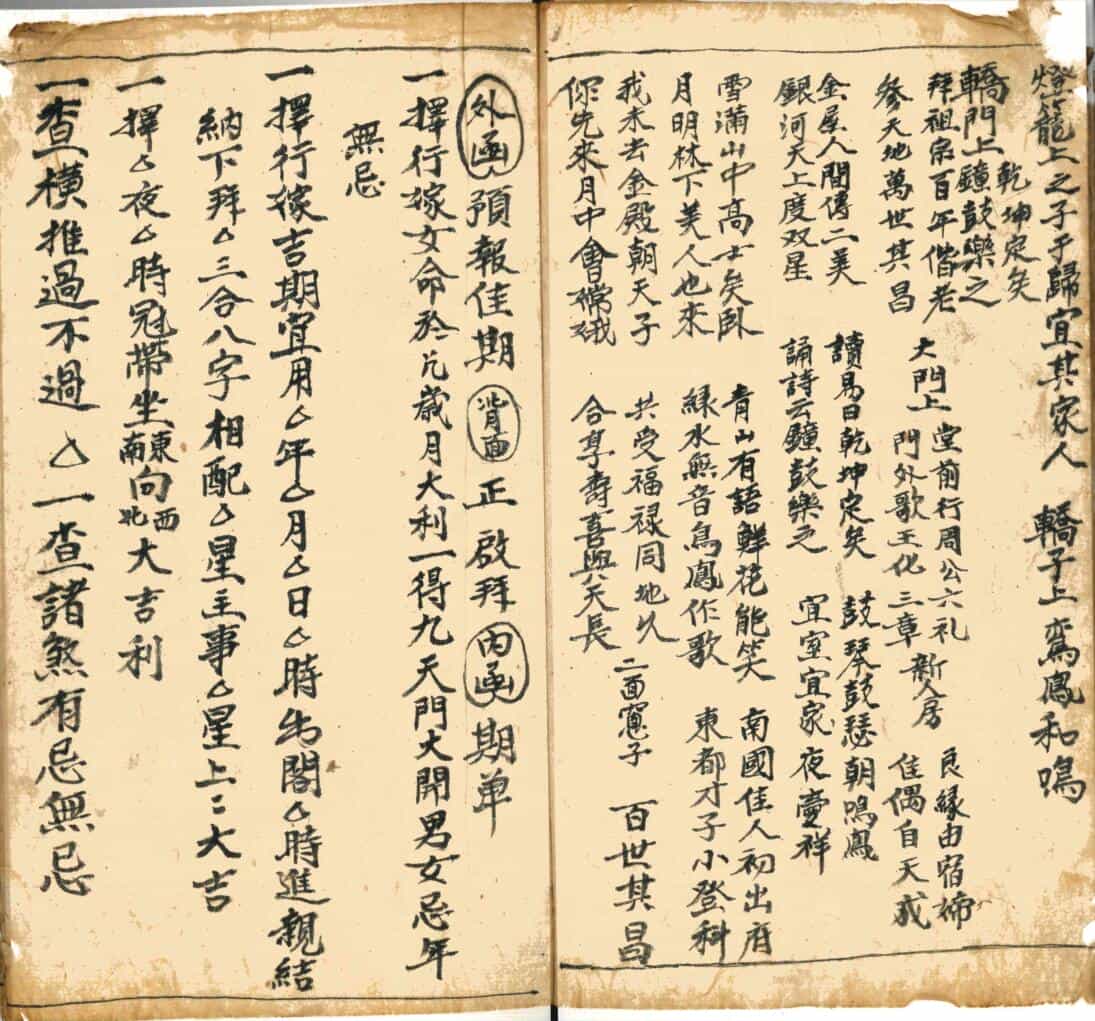 燈籠上之子于歸宜其家人 轎子上鸞鳳和鳴
轎門上鐘鼓樂之 乾坤定矣
拜祖宗百年偕老 大門上 堂前行周公六礼 新人房 良緣由宿締
參天地萬世其昌 門外歌王化三章 佳偶自天成
金屋人間傳二美 讀易曰乾坤定矣 鼓琴鼓瑟朝鳴鳳
銀河天上度双星 誦詩云鐘鼓樂之 宜室宜家夜夢祥
雪滿山中高士矣臥 青山有語鮮花能笑 南國佳人初出府
月明林下美人也來 綠水無音鳥鳳作歌 東都才子小登科
我未去金殿朝天子 共受福禄同地久 二面窻子 百世其昌
你先來月中會嫦娥 合享壽喜與天長
外函 預報佳期 背面 正啟拜 內函 期单
一擇行嫁女命於几歲月大利一得九天門大開男女忌年
無忌
一擇行嫁吉期宜用△年△月△日△時出閣△時進親結
納下拜△三合八字相配△星主事△星上〻大吉
一擇△夜△時冠帶坐東南向西北大吉利
一查橫推過不過△一查諸煞有忌無忌